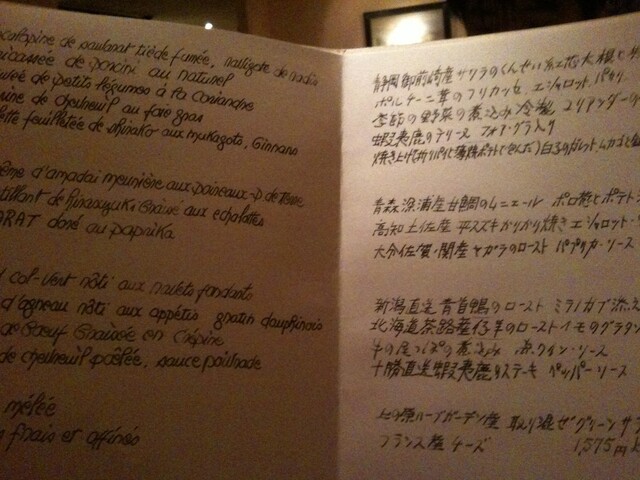 de saularat tiède fumée,
fricassée de porcini au naturel
de petits légumes à la coriandre
de chevreuil au foie gras
feuilletée de shirako aux mukagots, Ginnans
d'amadai meunière aux poireaux-p. de terre
de hirasuzuki Braisé aux echalottes
doré au paprika
col-vert rôti aux navets fondants
d'agneau rôti aux appétis gratin dauphinois
de Boeuf Braisée en crépine
de chevreuil poêlée, sauce poivrade
mêlée
frais et affinés
静岡御前崎産サワラのくんせい 紅芯大根と
ポルチーニ茸のフリカッセ エシャロット、パセリ
季節の野菜の煮込み 冷製 コリアンダー
蝦夷鹿のテリーヌ フォアグラ入り
白子のガレット ムカゴと
青森深浦産甘鯛のムニエール ポロ葱とポテト
高知土佐産 平スズキかりかり焼き エシャロット
大分佐賀ノ関産ヤガラのロースト パプリカ・ソース
新潟直送 青首鴨のロースト ミラノカブ添え
北海道茶路産仔羊のロースト イモのグラタン
牛の尾っぽの煮込み 赤ワイン・ソース
十勝直送蝦夷鹿のステーキ ペッパー・ソース
上の原ハーブガーデン産 取り混ぜグリーンサラ
フランス産 チーズ 1,575円